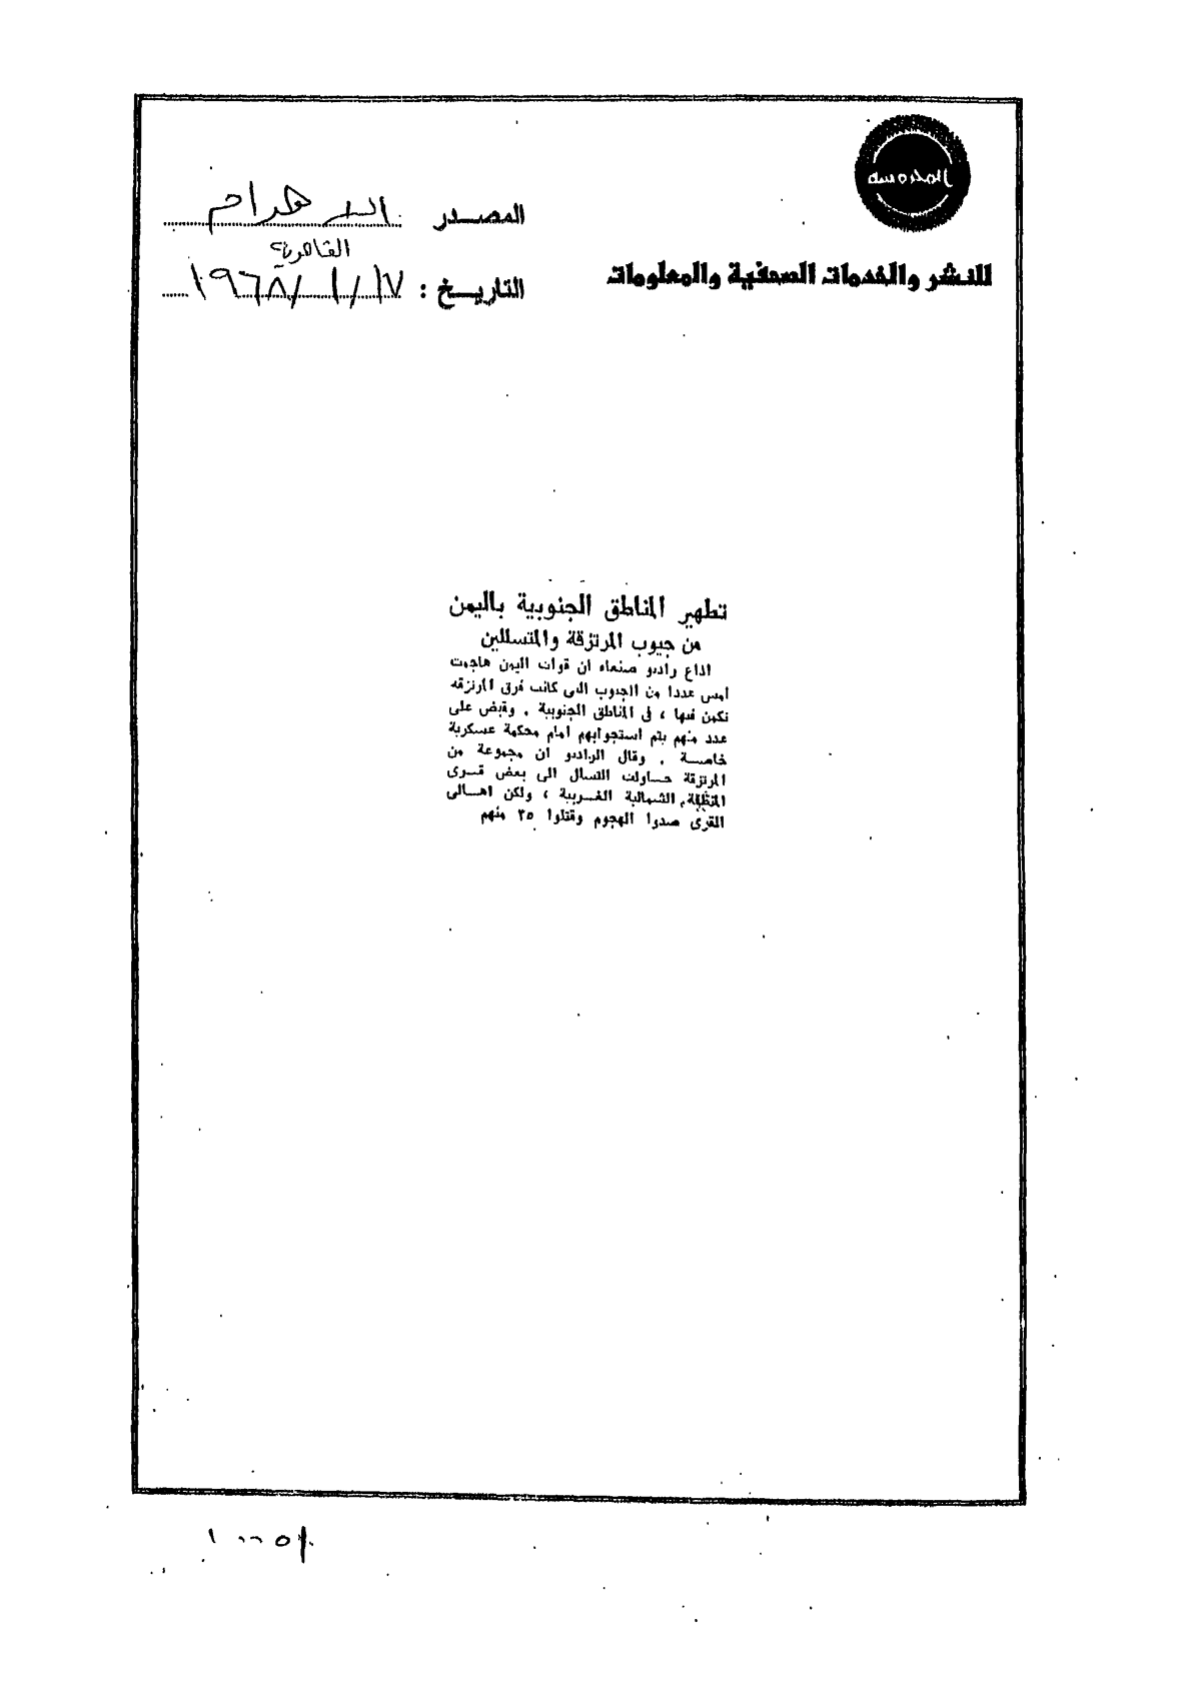 المحروسه
للنشر والخدمات الصحفية والمعلومات
المصدر الاهرام
القاهرية
التاريخ : ١٩٦٨/١/١٧
تطهير المناطق الجنوبية باليمن
من جيوب المرتزقة والمتسللين
اذاع راديو صنعاء ان قوات اليمن هاجمت
أمس عددا من الجيوب التى كانت فرق المرتزقه
تكمن فيها ، فى المناطق الجنوبية . وقبض على
عدد منهم يتم استجوابهم امام محكمة عسكرية
خاصة . وقال الراديو ان مجموعة من
المرتزقة حاولت التسلل الى بعض قرى
المنطقة الشمالية الغربية ، ولكن اهالى
القرى صدوا الهجوم وقتلوا ٣٥ منهم